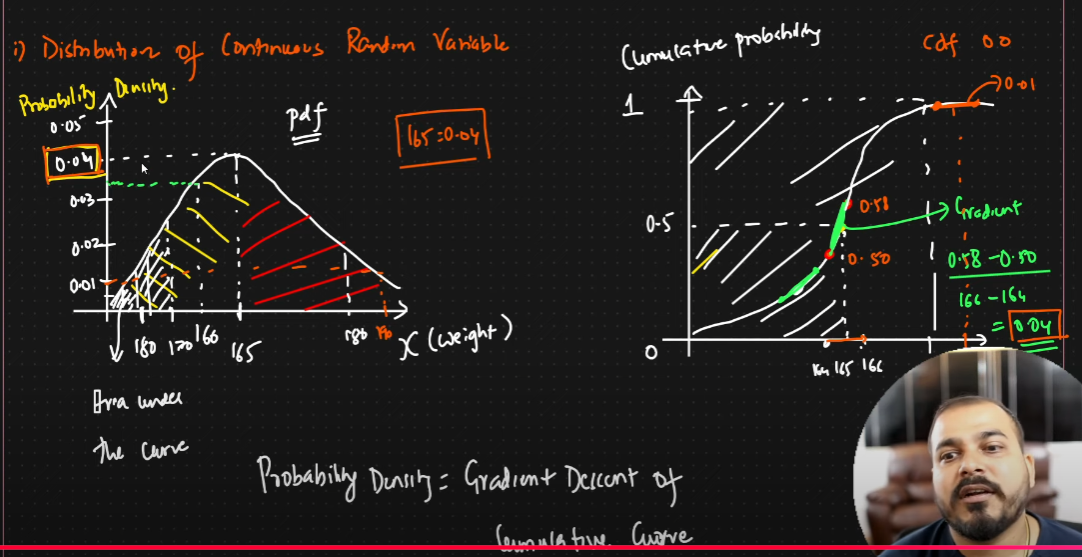 i) Distribution of Continuous Random Variable
Probability Density.
0.05
0.04
0.03
0.02
0.01
pdf
165 = 0.04
160
165
180
X (weight)
Area under
the curve
Cumulative probability
cdf
0.01
1
0.5
0
0.58
0.50
Gradient
0.58 - 0.50
166 - 164
= 0.04
165 166
Probability Density = Gradient Descent of
Cumulative Curve